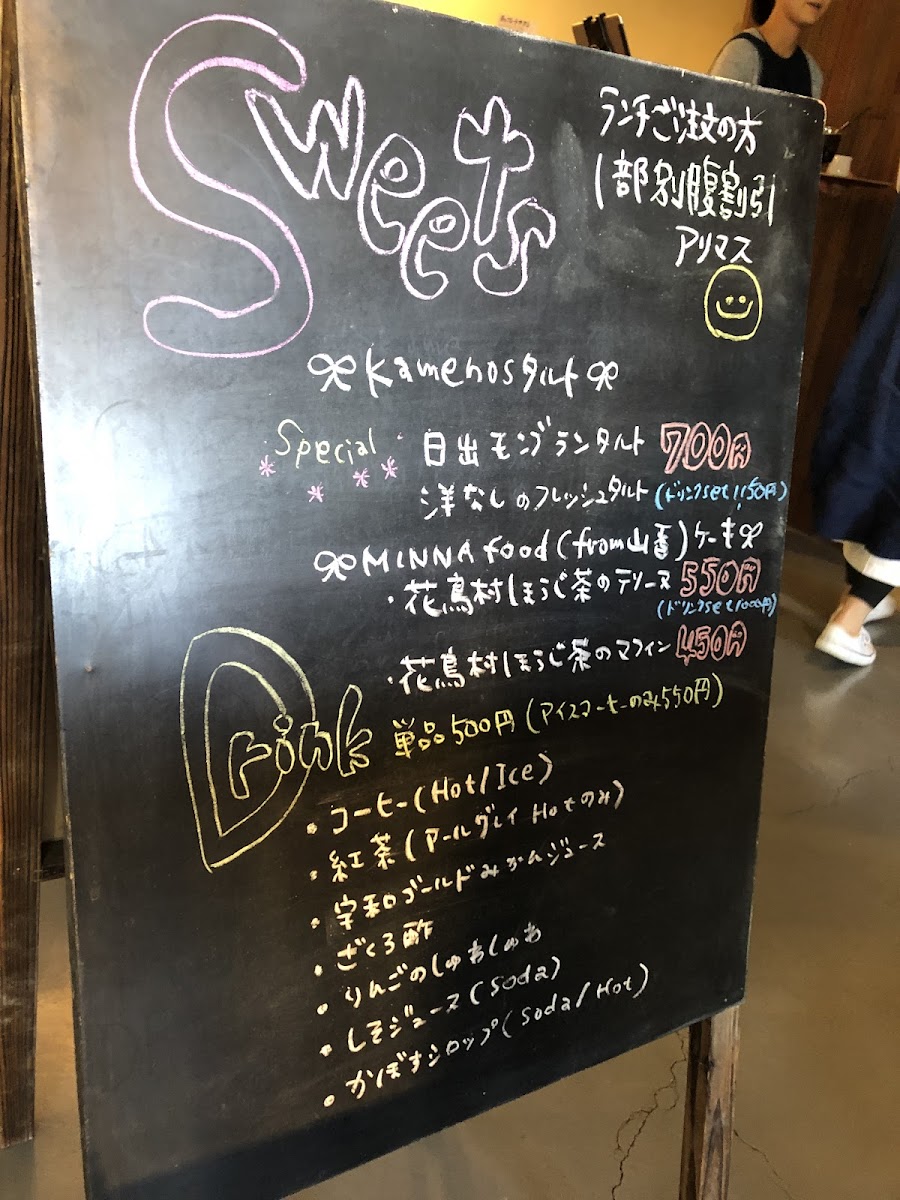 Sweets
ランチご注文の方
1部別腹割引
アリマス
kamenosタルト
Special
日出モンブランタルト 700円
洋なしのフレッシュタルト (ドリンクset 1150円)
MINNA food (from山香) ケーキ
・花鳥村ほうじ茶のテリーヌ 550円
(ドリンクset 1000円)
・花鳥村ほうじ茶のマフィン 450円
Drink 単品500円 (アイスコーヒーのみ550円)
・コーヒー(Hot/Ice)
・紅茶(アールグレイ Hotのみ)
・宇和ゴールドみかんジュース
・ざくろ酢
・りんごのしゅわしゅわ
・しそジュース(Soda)
・かぼすシロップ(Soda/Hot)